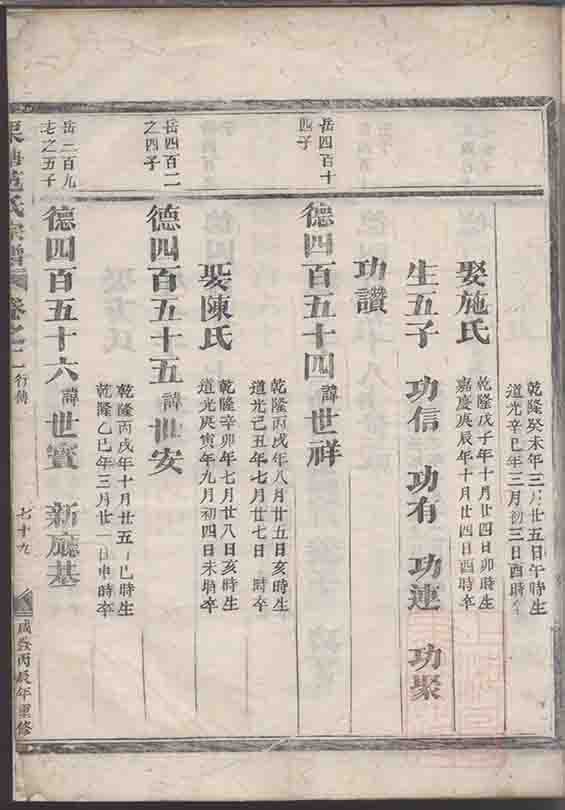 乾隆癸未年三月廿五日午時生
道光辛巳年三月初三日酉時卒
娶施氏
乾隆戊子年十月廿四日卯時生
嘉慶庚辰年十月廿四日酉時卒
生五子 功信 功有 功連 功聚
功讚
岳四百十
四子
德四百五十四諱世祥
乾隆丙戌年八月廿五日亥時生
道光己丑年七月廿七日 時卒
娶陳氏
乾隆辛卯年七月廿八日亥時生
道光庚寅年九月初四日未時卒
岳四百二
之四子
德四百五十五諱世安
乾隆丙戌年十月廿五 巳時生
乾隆乙巳年三月廿一日申時卒
岳二百九
七之五子
德四百五十六諱世實 新廳基
范氏宗譜 卷之二行傳
七十九
咸豐丙辰年重修